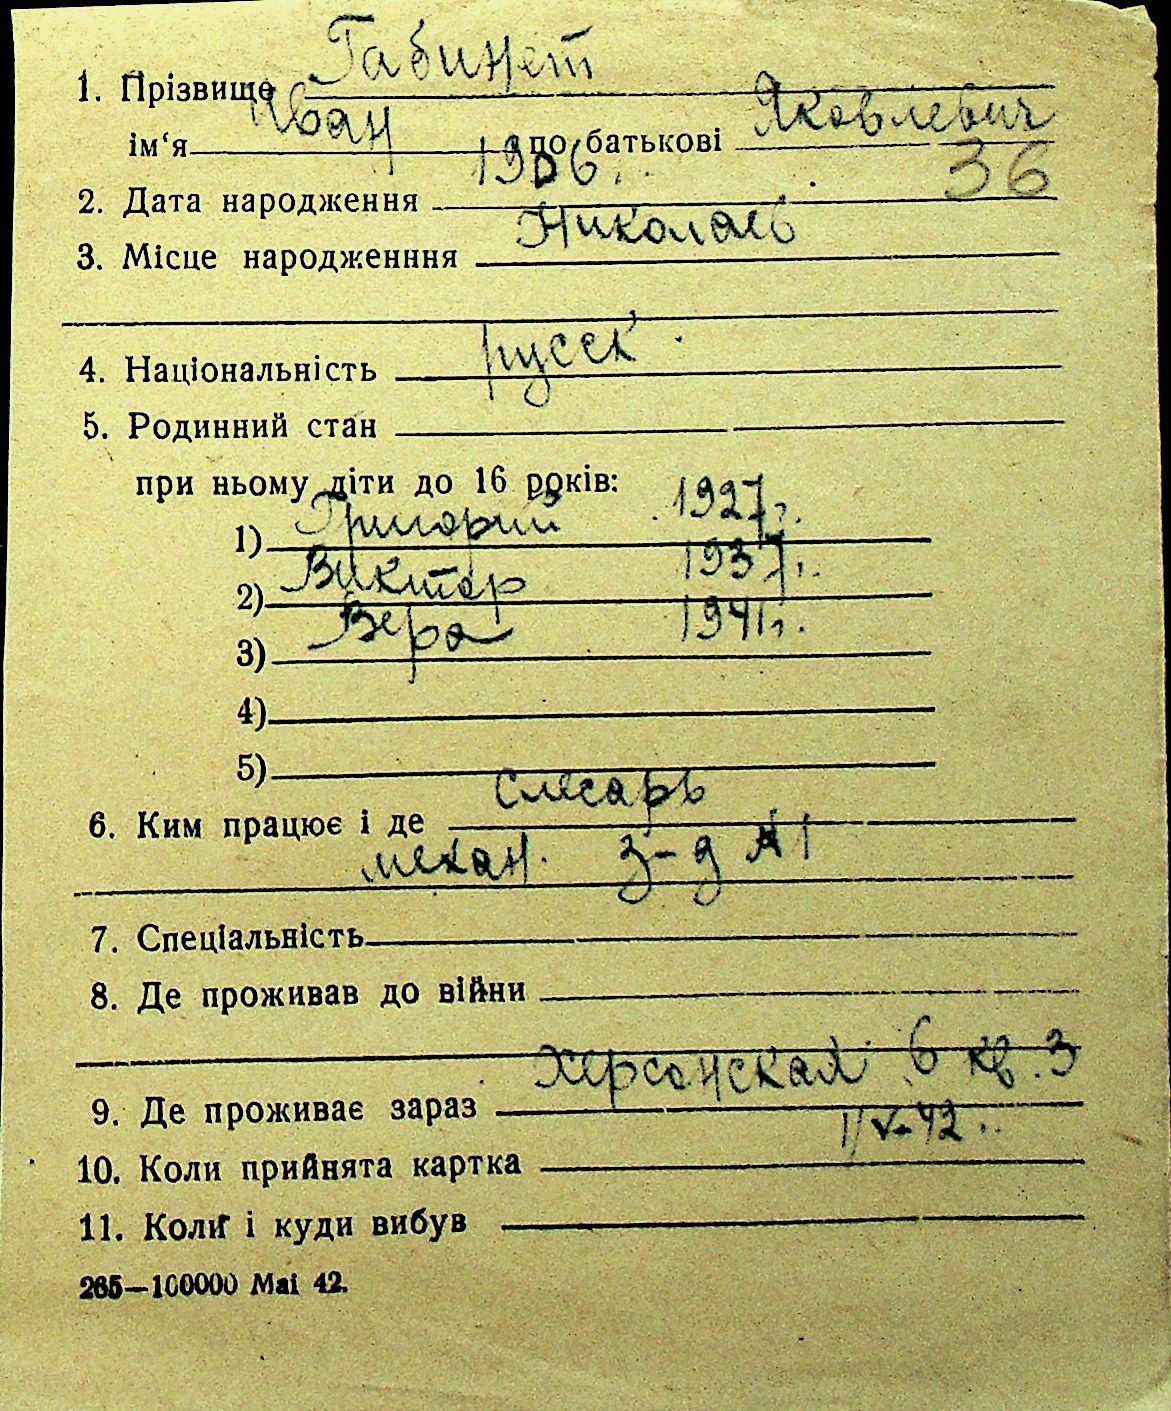 1. Прізвище Габинет
ім‘я Иван по батькові Яковлевич
2. Дата народження 1906. 36
3. Місце народженння Николаев
4. Національність русск
5. Родинний стан
при ньому діти до 16 років:
1) Григорий 1927г.
2) Виктор 1937г.
3) Вера 1941г.
4)
5)
6. Ким працює і де слесарь
механ. з-д №1
7. Спеціальність
8. Де проживав до війни
9. Де проживає зараз Херсонская 6 кв. 3
10. Коли прийнята картка V-42
11. Коли і куди вибув
265—100000 Mai 42.